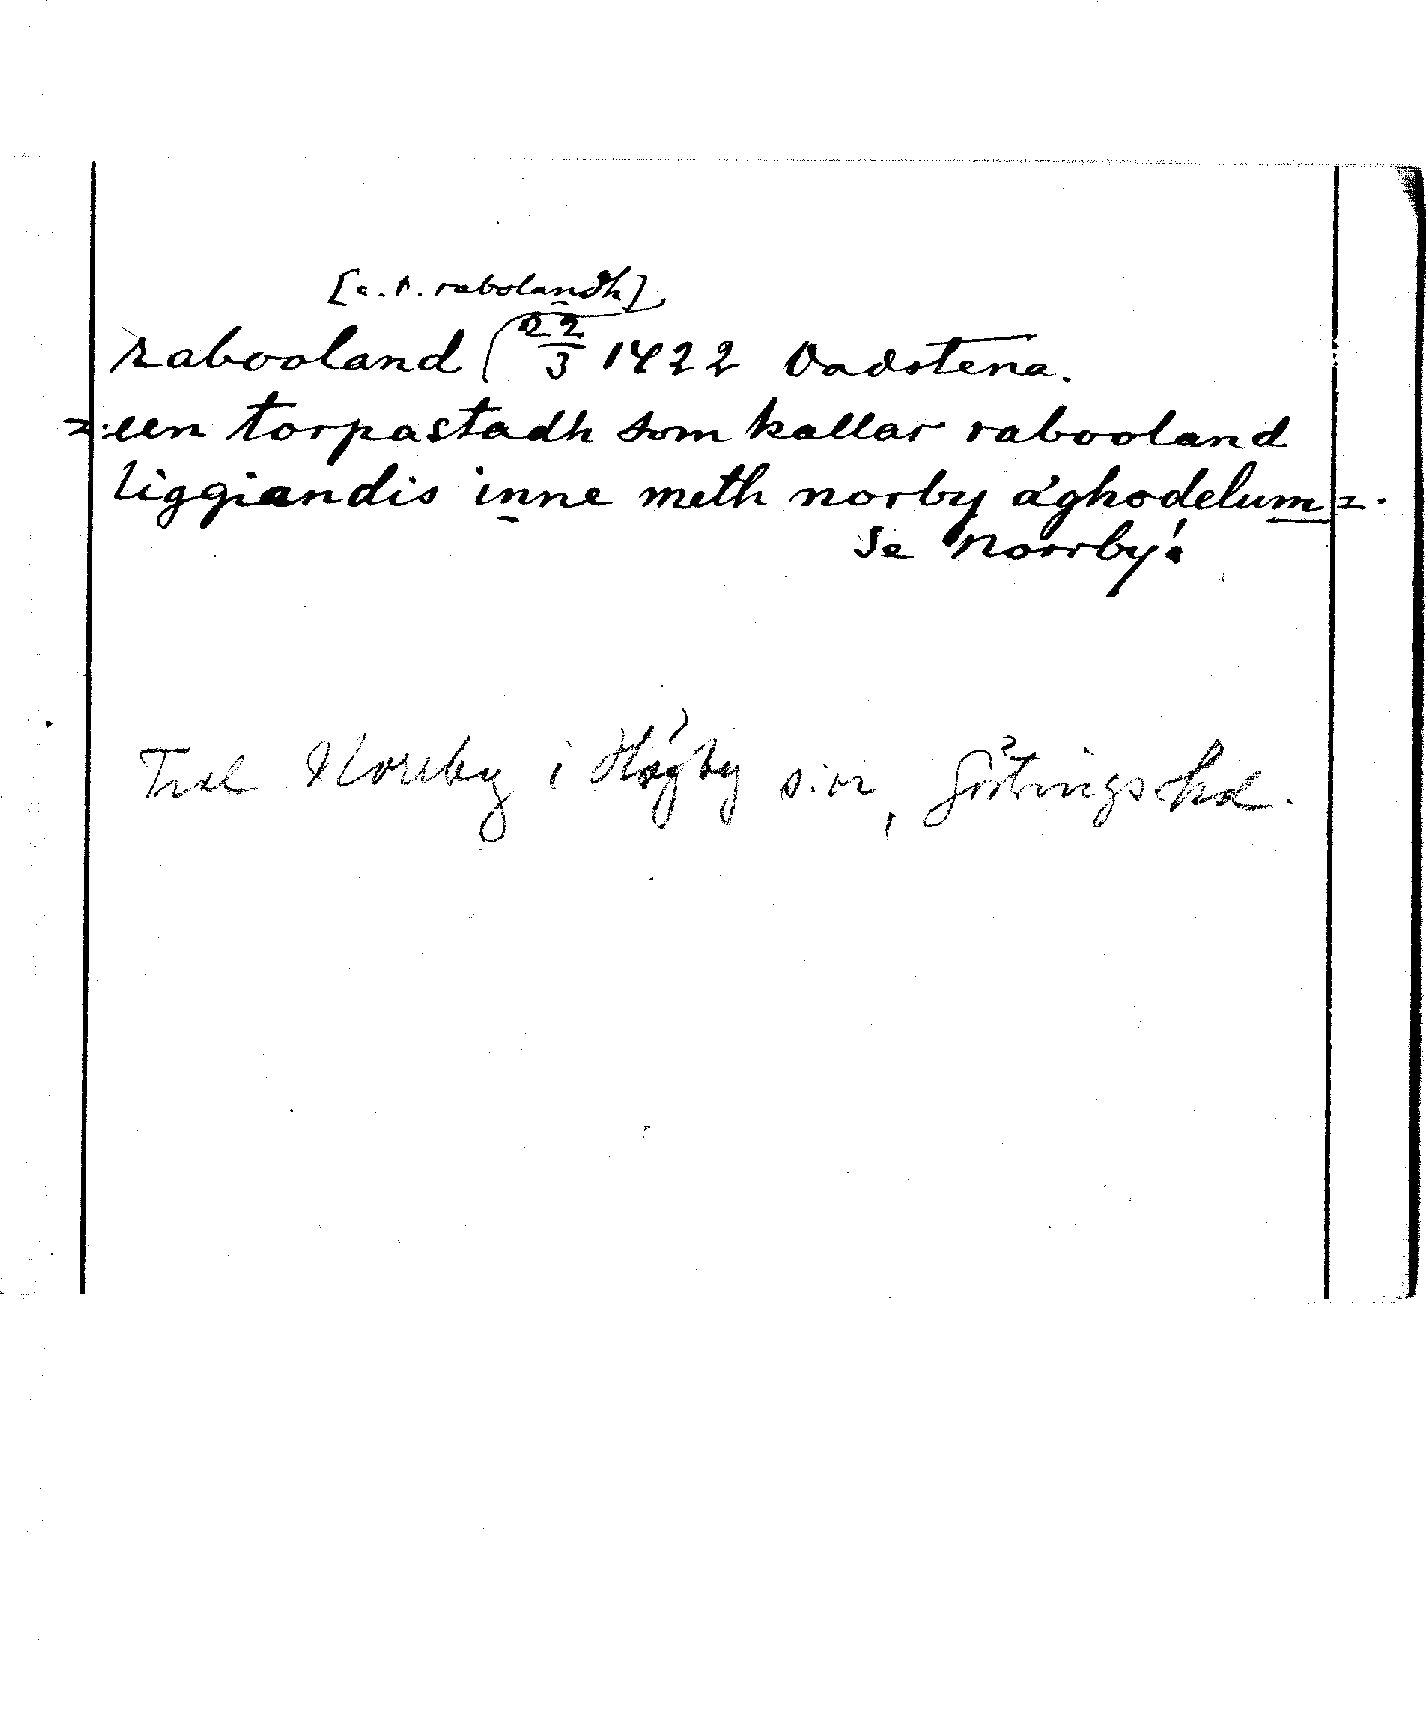 [a. t. rabolandh]
rabooland 22/3 1422 Vadstena.
=:een torpastadh som kallar rabooland
liggiandis inne meth norby ághodelum=.
Se Norrby!
Trol Norrby i Högby s:n, Göstringshd.